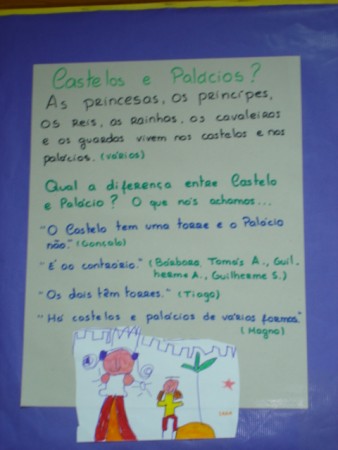 Castelos e Palácios?
As princesas, os príncipes,
os reis, as rainhas, os cavaleiros
e os guardas vivem nos castelos e nos
palácios. (vários)
Qual a diferença entre Castelo
e Palácio? O que nós achamos...
"O Castelo tem uma torre e o Palácio
não." (Gonçalo)
"É ao contrário." (Bárbara, Tomás A., Guil-
herme A., Guilherme S.)
"Os dois têm torres." (Tiago)
"Há castelos e palácios de várias formas."
(Magno)